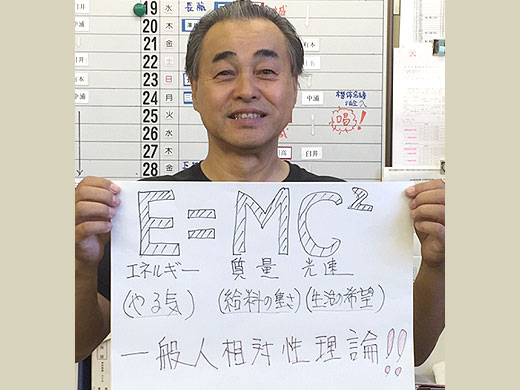 19 水
20 木
21 金 有本
22 土
23 日
24 月 中浦
25 火 唱!
26 水
27 木 臼井
28 金
E=MC²
エネルギー 質量 光速
(やる気) (給料の重さ) (生活の希望)
一般人相対性理論!!